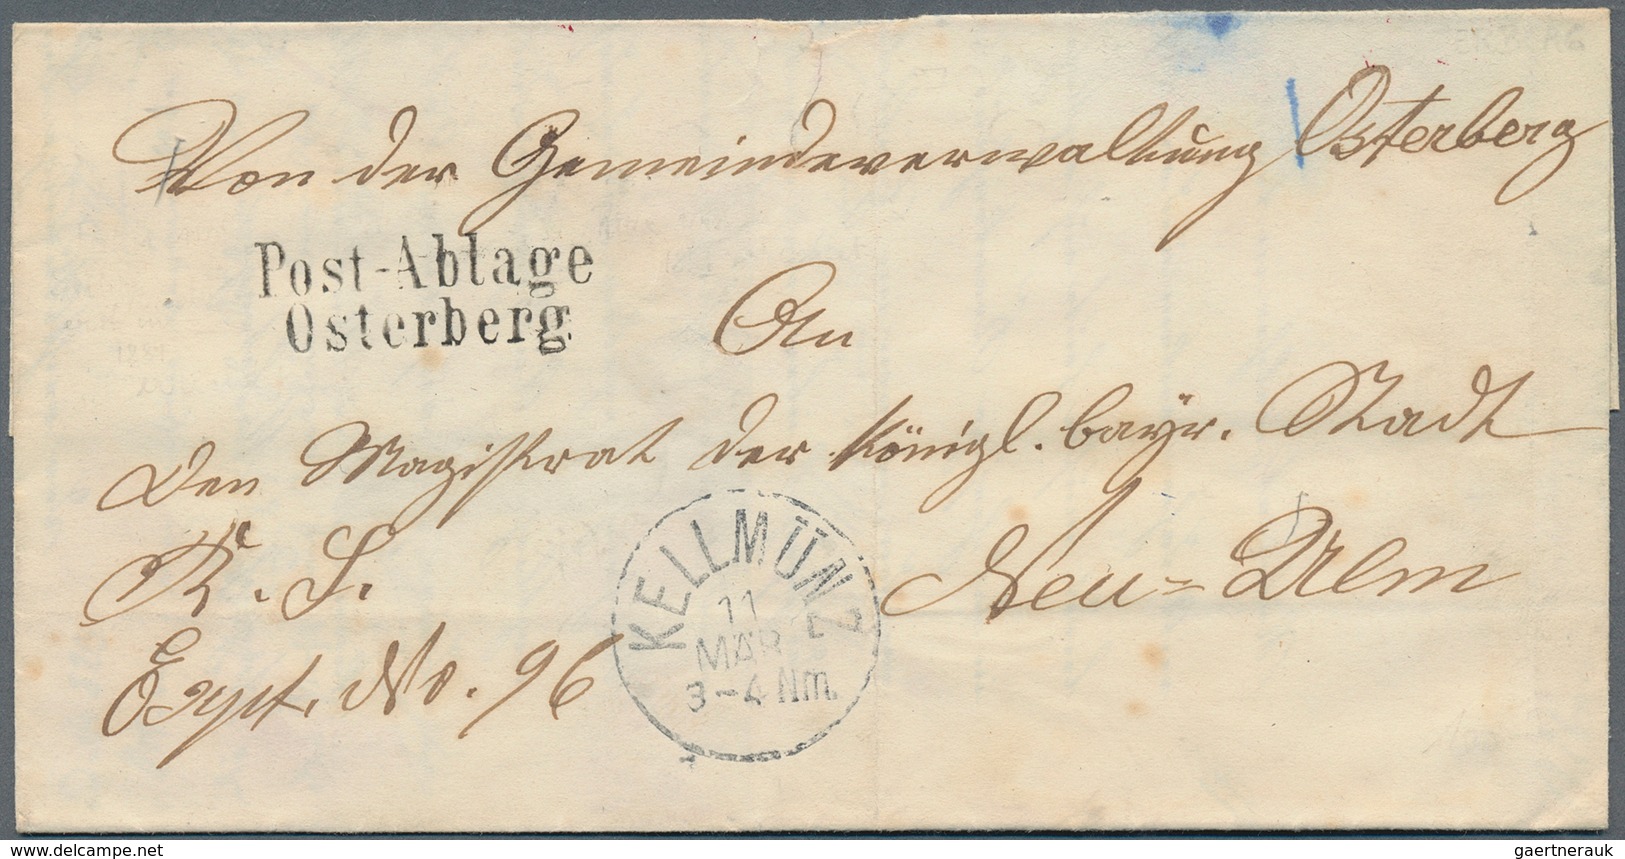 Von der Gemeindeverwaltung Osterberg
Post-Ablage
Osterberg
An
den Magistrat der königl. bayr. Stadt
R. S.
Neu-Ulm
KELLMÜNZ
11
MÄR
3-4 Nm.
Expt. No. 96
www.delcampe.com
gaertnerauk